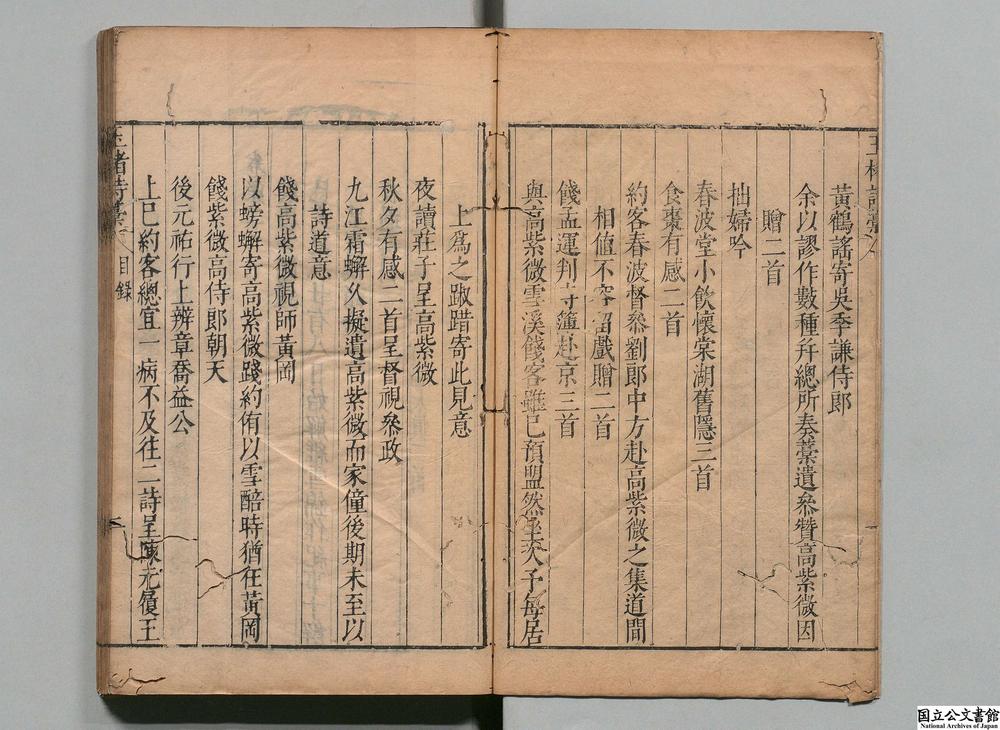 黃鶴謠寄吳季謙侍郎
余以謬作數種幷總所奏藁遺叅贊高紫微因
贈二首
拙婦吟
春波堂小飲懷棠湖舊隱三首
食棗有感二首
約客春波督叅劉郎中方赴高紫微之集道間
相值不容留戲贈二首
餞孟運判寺簿赴京三首
與高紫微雪溪餞客雖已預盟然至次予每居
上爲之踧踖寄此見意
夜讀莊子呈高紫微
秋夕有感二首呈督視叅政
九江霜蠏久擬遺高紫微而家僮後期未至以
詩道意
餞高紫微視師黃岡
以螃蠏寄高紫微踐約侑以雪醅時猶在黃岡
餞紫微高侍郎朝天
後元祐行上辨章喬益公
上巳約客總宜一病不及往二詩呈陳元履王
玉楮詩藁
目錄
国立公文書館
National Archives of Japan